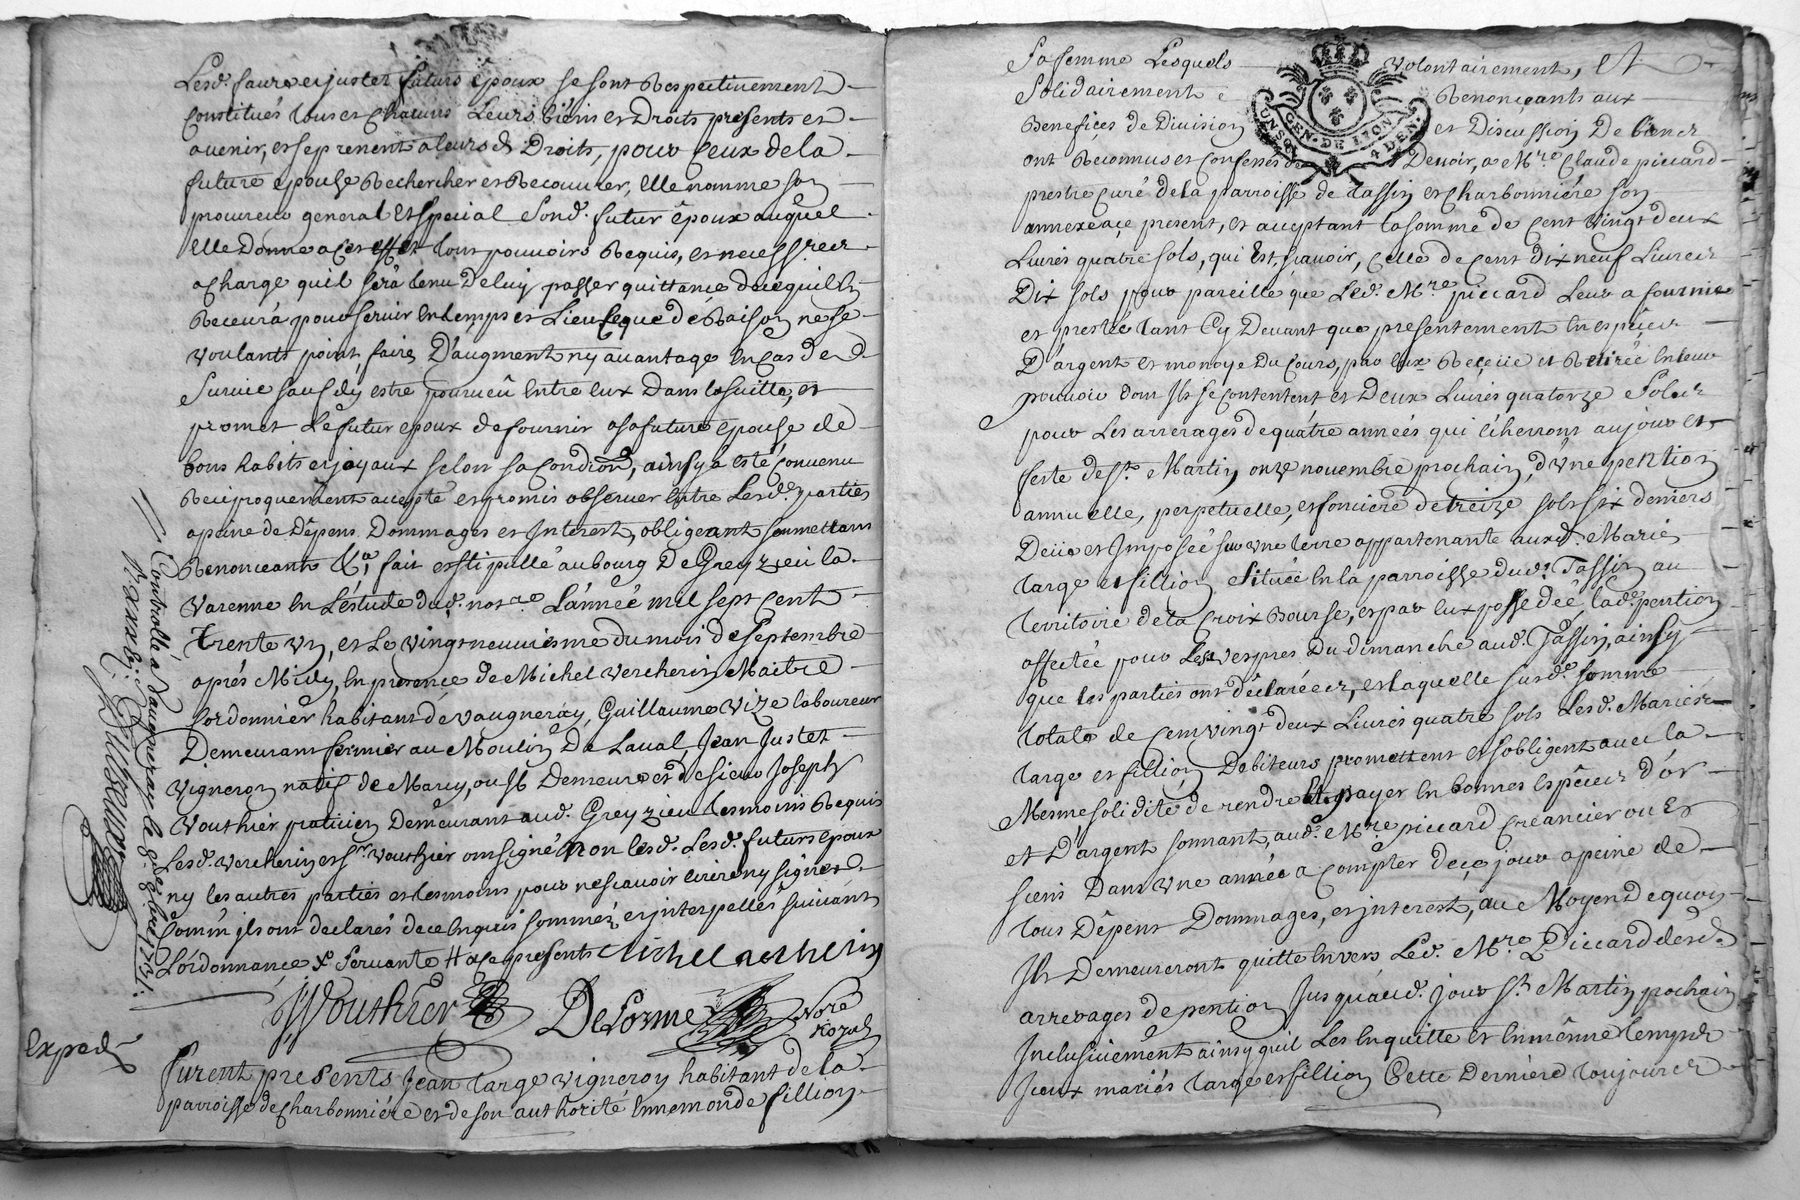 Lesd. faure et juster futurs Epoux se sont Respectivement
Constitués tous et Chacuns Leurs biens et Droits presents et
avenir, et se prenent a leursd Droits, pour Ceux de la
future epouze Rechercher et Recouvrer, Elle nomme son
procureur general Et Special Sond. futur Epoux auquel
Elle Donne a Cet effet tout pouvoirs Requis, et necess.res
a Charge quil sera tenu De luy passer quittance de ce quil En
Recevra pour servir En temps et Lieu Ce que de Raison, ne se
voulants point faire D'augment ny avantage En Cas de
Survie sauf d'y estre pourveu Entre Eux Dans la suitte, et
promet Le futur epoux de fournir a sa future Epouze de
bons habits et joyaux selon sa Condiôn, ainsy a esté Convenu
Reciproquement accepté et promis observer Entre Lesd. parties
a peine de Dépens Dommages et Interest, obligeant soumettant
Renonceant &a fait et stipullé au bourg De Greyzieu la
Varenne En L'estude dud. not.re L'année mil sept Cent
Trente un, et Le vingt neuvieme du mois de Septembre
aprés Midy, En presence de Michel Vercherin Maitre
Cordonnier habitant de Vaugneray, Guillaume Vize laboureur
Demeurant fermier au Moulin De Laval, Jean Juster
Vigneron natif de Marcy, ou Il Demeure et de sieur Joseph
Wouthier praticien Demeurant aud. Greyzieu tesmoins Requis
Lesd. Vercherin et Sr. Wouthier ont signé Non lesd. Lesd. futurs epoux
ny les autres parties et tesmoins pour ne scavoir Ecrire ny signer
Comm ils ont declarés de ce Enquis sommez et interpellés suivant
L'ordonnance
Michel vercherin
JWouthier
DeLorme
Nore
Royal
Controllé à Vaugneray le
Exped.
Furent presents Jean Large vigneron habitant de la
parroisse de Charbonniére et de son authorité Ennemonde fillion
Sa femme Lesquels volontairement, Et
Solidairement Renonçants aux
Benefices de Division et Discussion De biens
ont Reconnus et Confessés Devoir, a Mre. Claude piccard
prestre curé de la parroisse de tassin et Charbonniére son
annexe ace present, et acceptant la somme de Cent vingt deux
Livres quatre sols, qui Est, scavoir, Celle de Cent dix neuf Livres
Dix sols pour pareille que Led. Mre. piccard Leur a fournie
et prestée tant Cy Devant que presentement En espéces
D'argent et monoye Du Cours, par Eux Receüe et Retirée En leur
pouvoir dont Ils se Contentent et Deux Livres quatorze Sols
pour Les arrerages de quatre années qui Echerront au jour Et
feste de St. Martin, onze novembre prochain, d'une pention
annuelle, perpetuelle, et fonciere de treize sols six deniers
Deüe et Imposée sur une terre appartenante auxd. Mariés
Large et fillion Située En la parroisse dud. Tassin au
Territoire de la Croix Bourse, et par Eux possedée, lad. pention
affectée pour Les vespres Du dimanche aud. Tassin, ainsy
que les parties ont déclarées, et laquelle susd. somme
totale de Cent vingt deux Livres quatre sols Lesd. Mariés
Large et fillion Debiteurs promettent et s'obligent avec la
Mesme solidité de rendre Et payer En bonnes Espéces d'or
et D'argent sonnant, aud. Mre. piccard Creancier ou Es
siens Dans une année a Compter de ce jour a peine de
tous Dépens Dommages, et interest, au Moyen De quoy
Ils Demeureront quitte Envers Led. Mre. Piccard desd.
arrerages de pention Jusqu'aud. Jour St. Martin prochain
Inclusivement ainsy quil Les Enquitte Et En même temps
Iceux mariés Large et fillion Cette Derniere toujours
GEN. DE LYON
4 DEN.